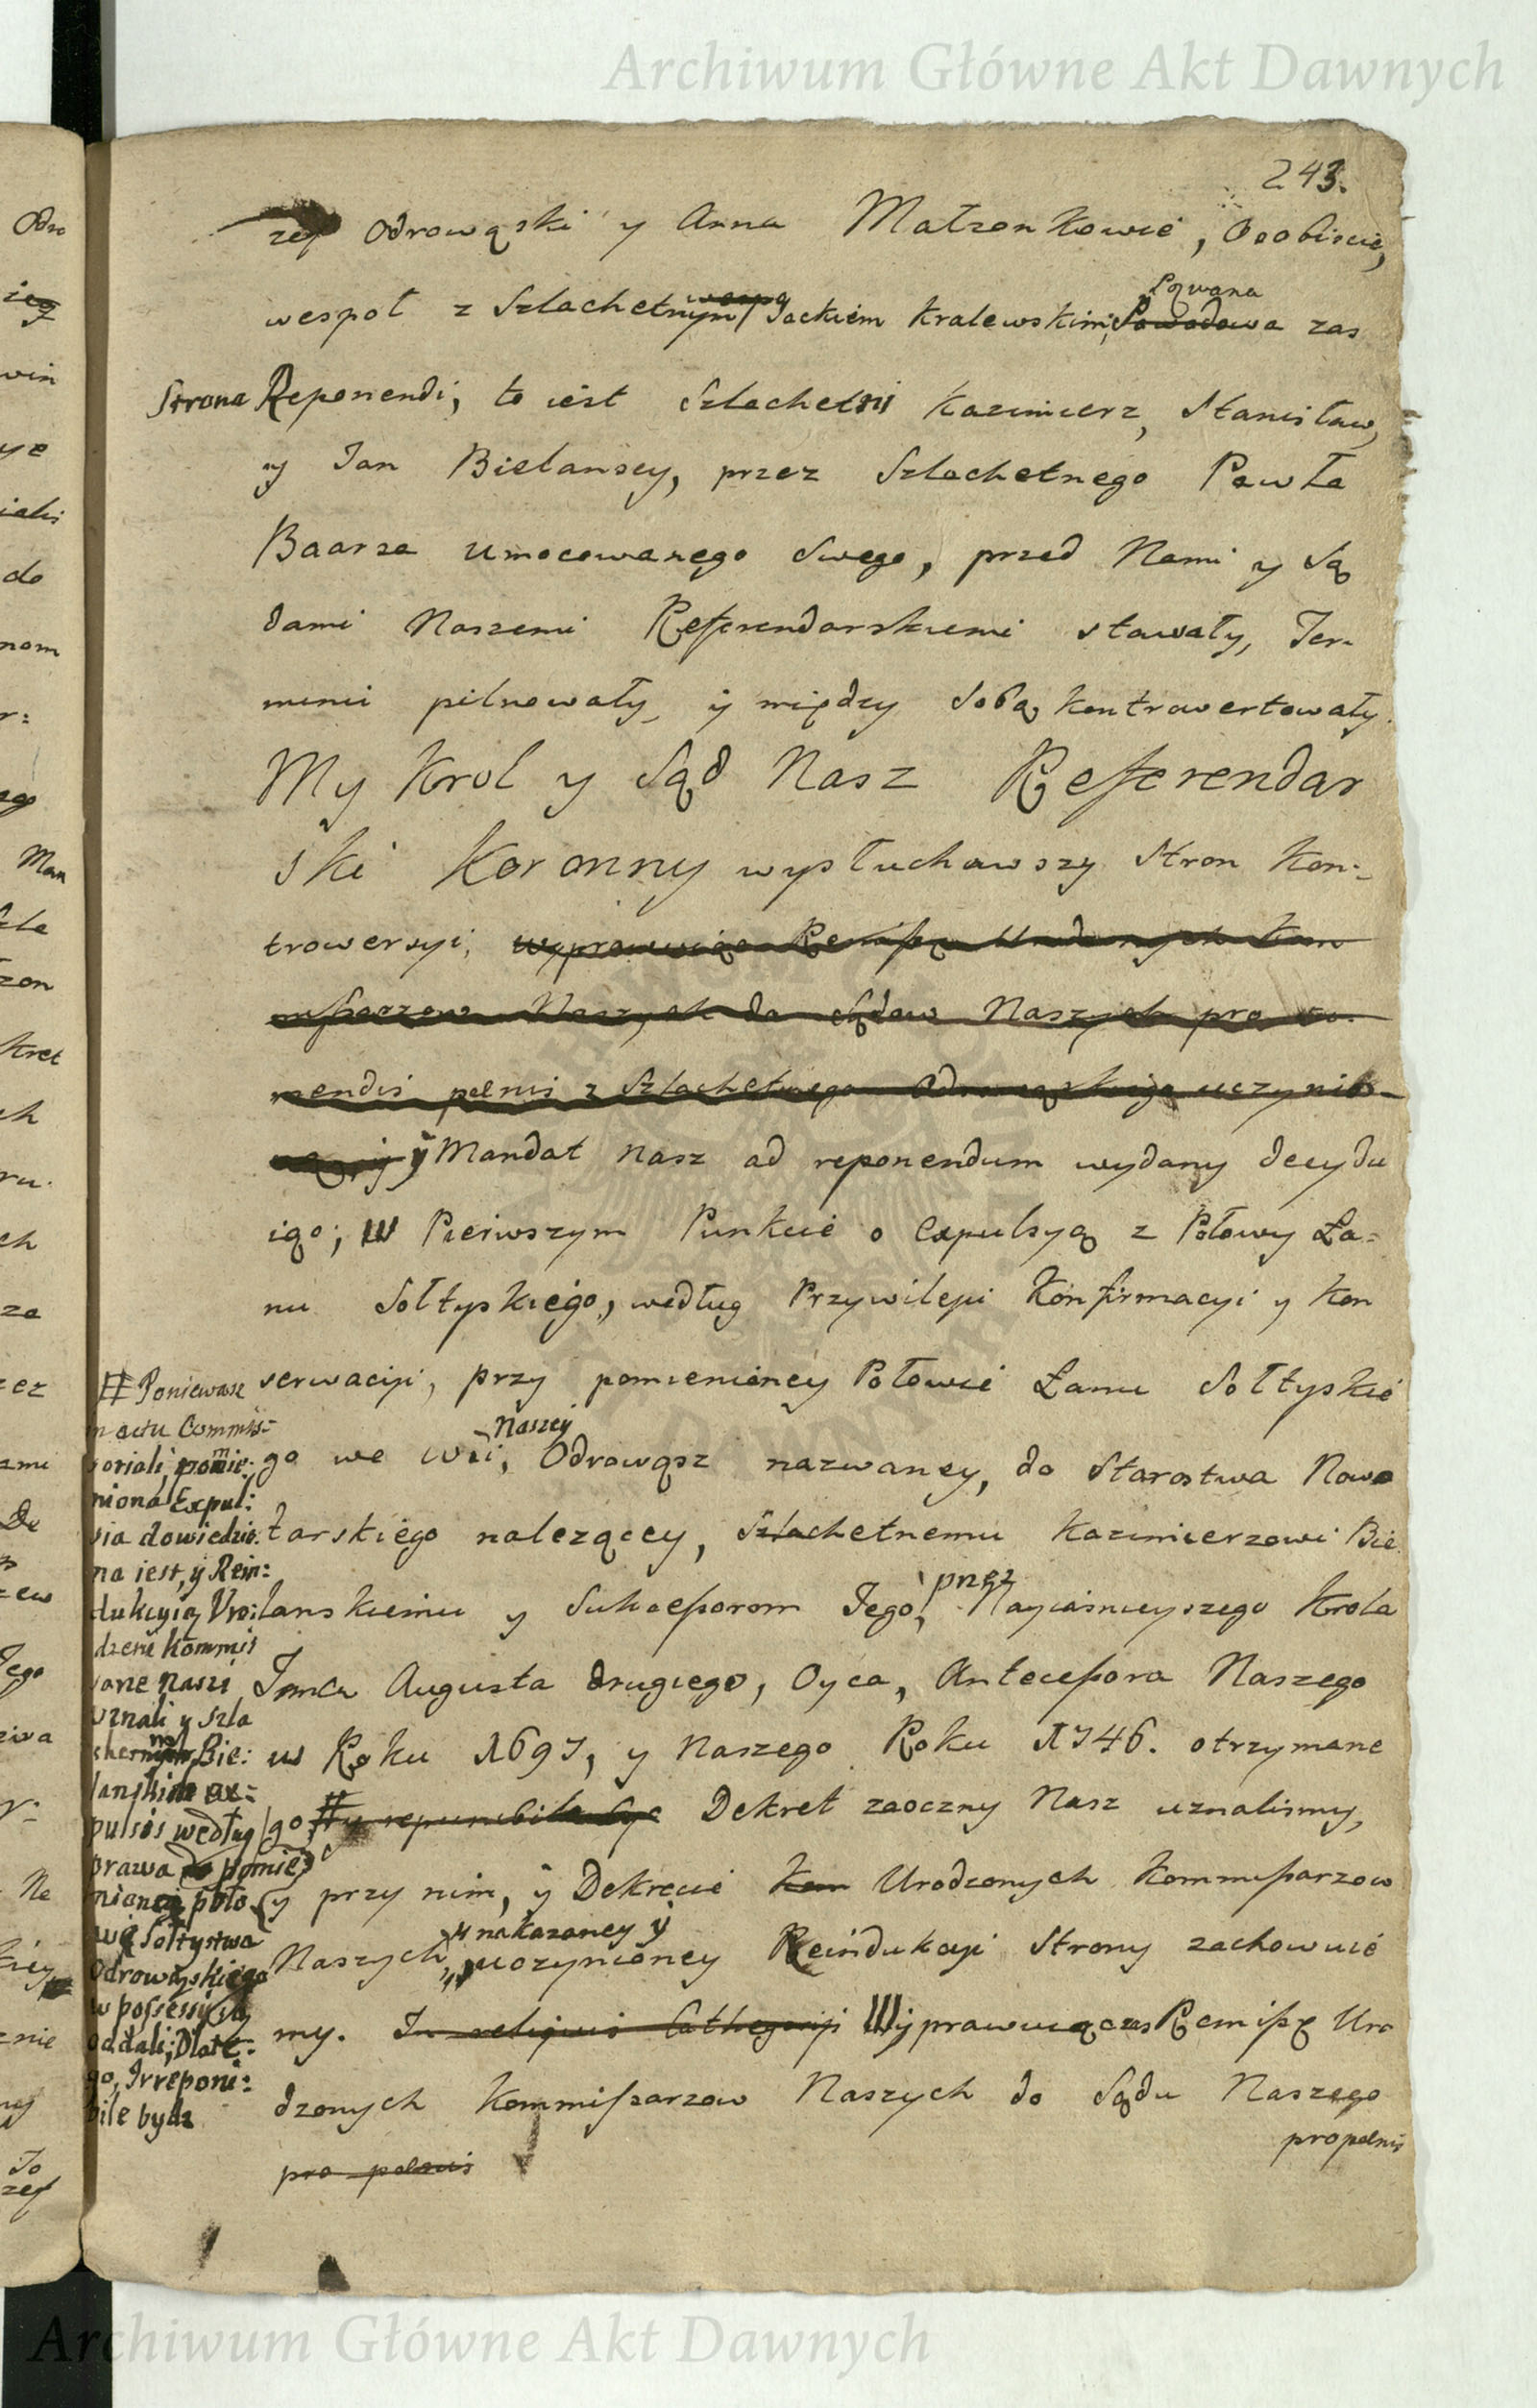 Archiwum Główne Akt Dawnych
243.
zef Odrowąski y Anna Małzonkowie, Osobiscie,
wespoł z Szlachetnym Jackiem Kralewskim, Pozwana
Powodowa zas
Strona Reponendi, to iest Szlachetni Kazimierz, Stanisław,
y Jan Bielanscy, przez Szlachetnego Pawła
Baarza umocowanego swego, przed Nami y Są
dami Naszemi Referendarskiemi stawały, Ter-
minu pilnowały, ÿ między sobą kontrowertowały.
My Krol y Sąd Nasz Referendar
ski Koronny wysłuchawszy Stron Kon:
trowersyi, wyprawuiąc Remissę Urodzonych Kom
missarzow Naszych do Sądow Naszych pro
mendis pœnis z Szlachetnego Odrowąskiego uczynio-
ÿ Mandat nasz ad reponendum wydany decydu
iąc; W Pierwszym Punkcie o Expulsyą z Połowy Ła=
nu Sołtyskiego, według Przywileju Konfirmacyi y Kon
serwacyi, przy pomienioney Połowie Łanu Sołtyskie
go we Wsi, Naszey Odrowąsz nazwaney, do Starostwa Nowo
tarskiego nalezącey, Szlachetnemu Kazimierzowi Bie
lanskiemu y Sukcessorom Jego, przez Nayiasnieyszego Krola
Jmci Augusta drugiego, Oyca, Antecessora Naszego
w Roku 1697, y Naszego Roku 1746. otrzymane
go, # Dekret zaoczny Nasz uznalismy,
y przy nim, ÿ Dekrecie Kom Urodzonych Kommissarzow
Naszych, nakazaney ÿ uczynioney Reindukcyi Strony zachowuie
my. In reliquis Cathegoryi Wyprawuiąc zas Remissę Uro
dzonych Kommissarzow Naszych do Sądu Naszego
pro pœnis
pro pœnis
# Poniewasz
in actu Commis=
soriali pomie:
niona Expul:
sia dowiedzio:
na iest, ÿ Rein:
dukcyią Vro:
dzeni Kommis
sarze Nasi
uznali y Szla
chetnych Bie:
lanskich ex=
pulsos według
prawa do pomie
nioney poło
wę Sołtystwa
Odrowąskiego
w possessyią
oddali; Dlate=
go, Irreponi:
bile bydz
Archiwum Główne Akt Dawnych